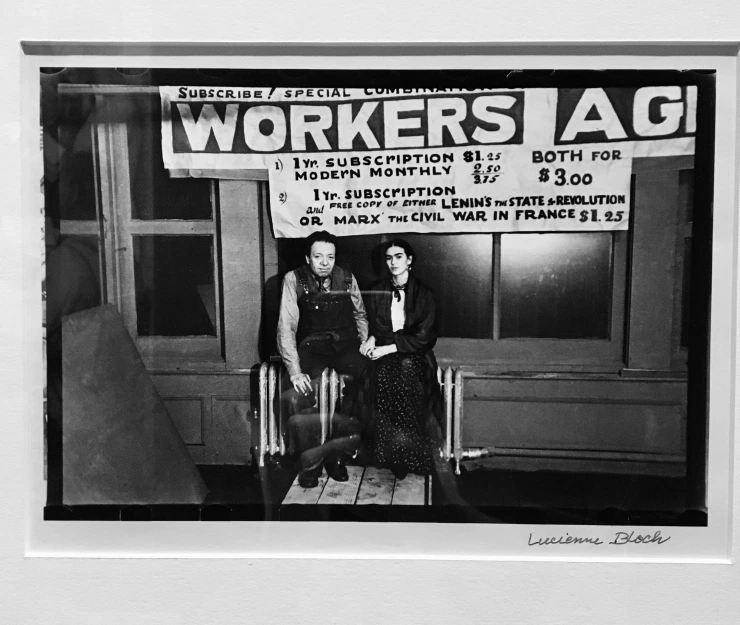 SUBSCRIBE! SPECIAL COMBINATION
WORKERS AG
1) 1 Yr. SUBSCRIPTION $1.25
MODERN MONTHLY 2.50
3.75
BOTH FOR
$3.00
2) 1 Yr. SUBSCRIPTION
and FREE COPY OF EITHER LENIN'S THE STATE & REVOLUTION
OR MARX' THE CIVIL WAR IN FRANCE $1.25
Lucienne Bloch